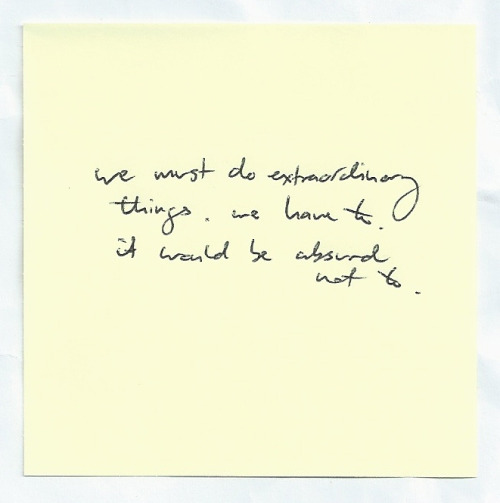 we must do extraordinary
things. we have to.
it would be absurd
not to.